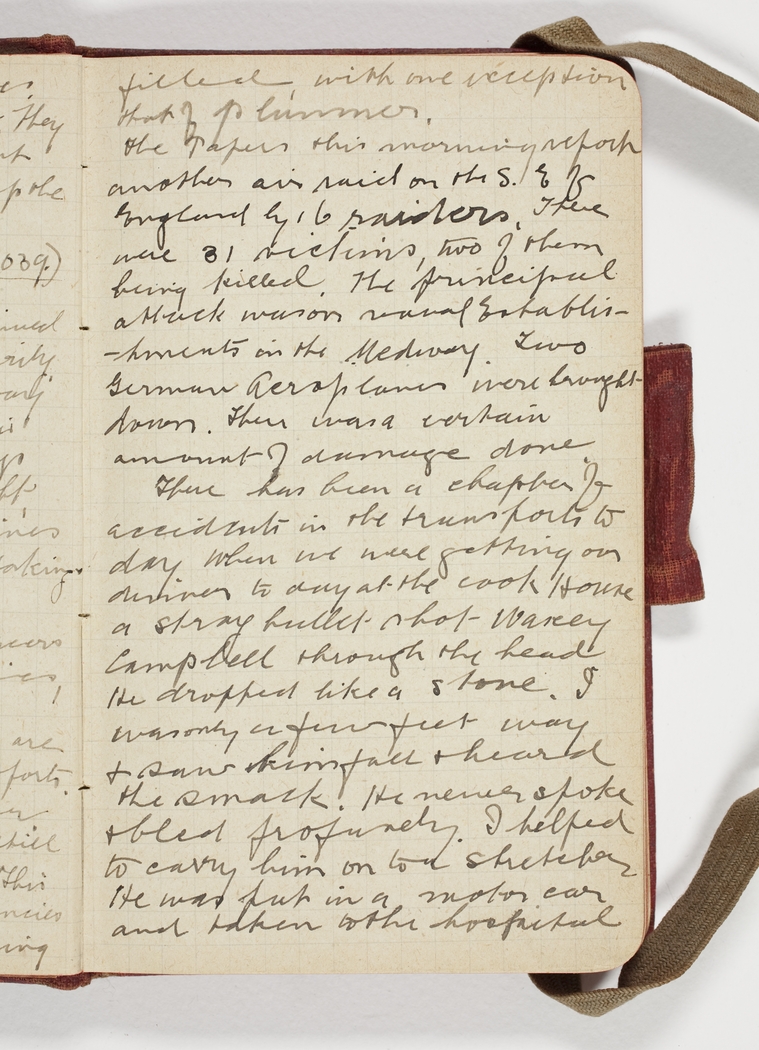 es
They
t
p the
039.)
ined
ority
ines
orking.
neers
ies,
are
forts.
er
still
This
encies
ing
filled, with one exception
that of plummer.
the Papers this morning report
another air raid on the S. E of
England by 16 raiders. There
were 31 victims, two of them
being killed. The principal
attack was on naval Establis-
-hments in the Medway. Two
German Aeroplanes were brought
down. There was a certain
amount of damage done.
There has been a chapter of
accidents in the transports to
day when we were getting our
dinner to day at the cook House
a stray bullet shot Waxey
Campbell through the head
He dropped like a stone. I
was only a few feet way
& saw him fall & heard
the smack. He never spoke
& bled profusely. I helped
to carry him on to a stretcher
He was put in a motor car
and taken to the hospital